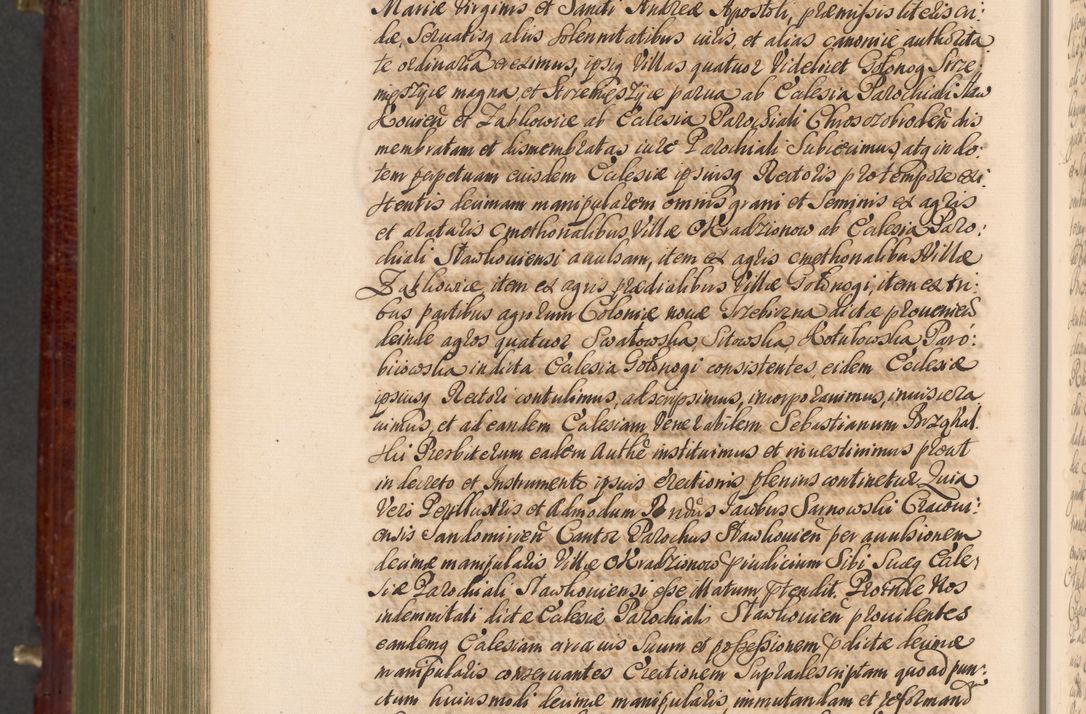 Mariæ Virginis et Sancti Andreæ Apostoli, præmissis literis cri:
dæ, Servatisq aliis solennitatibus iuris, et alias canonice authorita
te ordinaria ereximus, ipsiq Villas quatuor Videlicet Gołonog Strze
mięszyce magna, et Strzemięszyce parua ab Ecclesia Parochiali Sław
kouieñ et Ząbkowice ab Ecclesia Parochiali Chrosczobrodeñ dis
membratam et dismembratas iure Parochiali Subiecimus, atq in do:
tem perpetuam eiusdem Ecclesiæ ipsiusq Rectoris pro tempore exi:
stentis decimam manipularem omnis grani et Seminis ex agris
et araturis Cmethonalibus Villæ Okradzionow ab Ecclesia Paro:
chiali Sławkouiensi auulsam, item ex agris cmethonalibus Villæ
Ząbkowice, item ex agris prædialibus Villæ Gołonogi, item ex tri:
bus partibus agrorum Coloniæ nouæ Trzebiczna dictæ prouenien
deinde agros quatuor Swatowska, Sitowska, Kotułowska, Paro:
bicowska in dicta Ecclesia Gołonogi consistentes, eidem Ecclesiæ
ipsiusq Rectori contulimus, adscripsimus, incorporauimus, inuiscera
uimus, et ad eandem Ecclesiam Venerabilem Sebastianum Brzękal
ski Presbiterum eadem Authê instituimus et inuestiuimus prout
in decreto et Instrumento ipsius erectionis plenius continetur. Quia
Vero Perillustris et Admodum Rndus Jacobus Sarnowski Cracoui:
ensis Sandomirieñ Cantor Parochus Sławkouieñ per auulsionem
decimæ manipularis Villæ Okradzionow præiudicium Sibi Suæq Eccle:
siæ Parochiali Sławkouiensi esse illatum prtendit. Proinde Nos
indemnitati dictæ Ecclesiæ Parochialis Sławkouieñ prouidentes
eandemq Ecclesiam circa ius Suum et possessionem prdictæ decimæ
manipularis conseruantes Erectionem Supradescriptam quoad pun:
ctum huiusmodi decimæ manipularis, immutandam et reformand